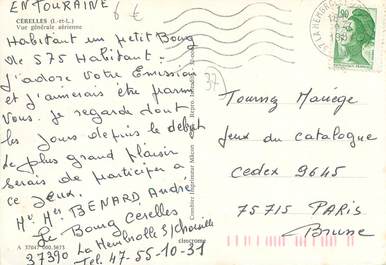 EN TOURAINE
6 €
CERELLES (I.-et-L.)
Vue générale aérienne
Habitant un petit Bourg
de 575 Habitant.
J'adore Votre Emission
et j'aimerais être parmi
Vous. je regarde tout
les Jours depuis le debut
Le plus grand plaisir
Serais de participer a
ce Jeux.
Mr Me BENARD André
Le Bourg Cerelles
37390 La Membrolle S/Choisille
Tel. 47-55-10-31
A 37047 000.5673
Combier Imprimeur Mâcon
cimcrome
37
0,90
Tournez Manège
Jeux du catalogue
cedex 9645
75715 PARIS
Brune